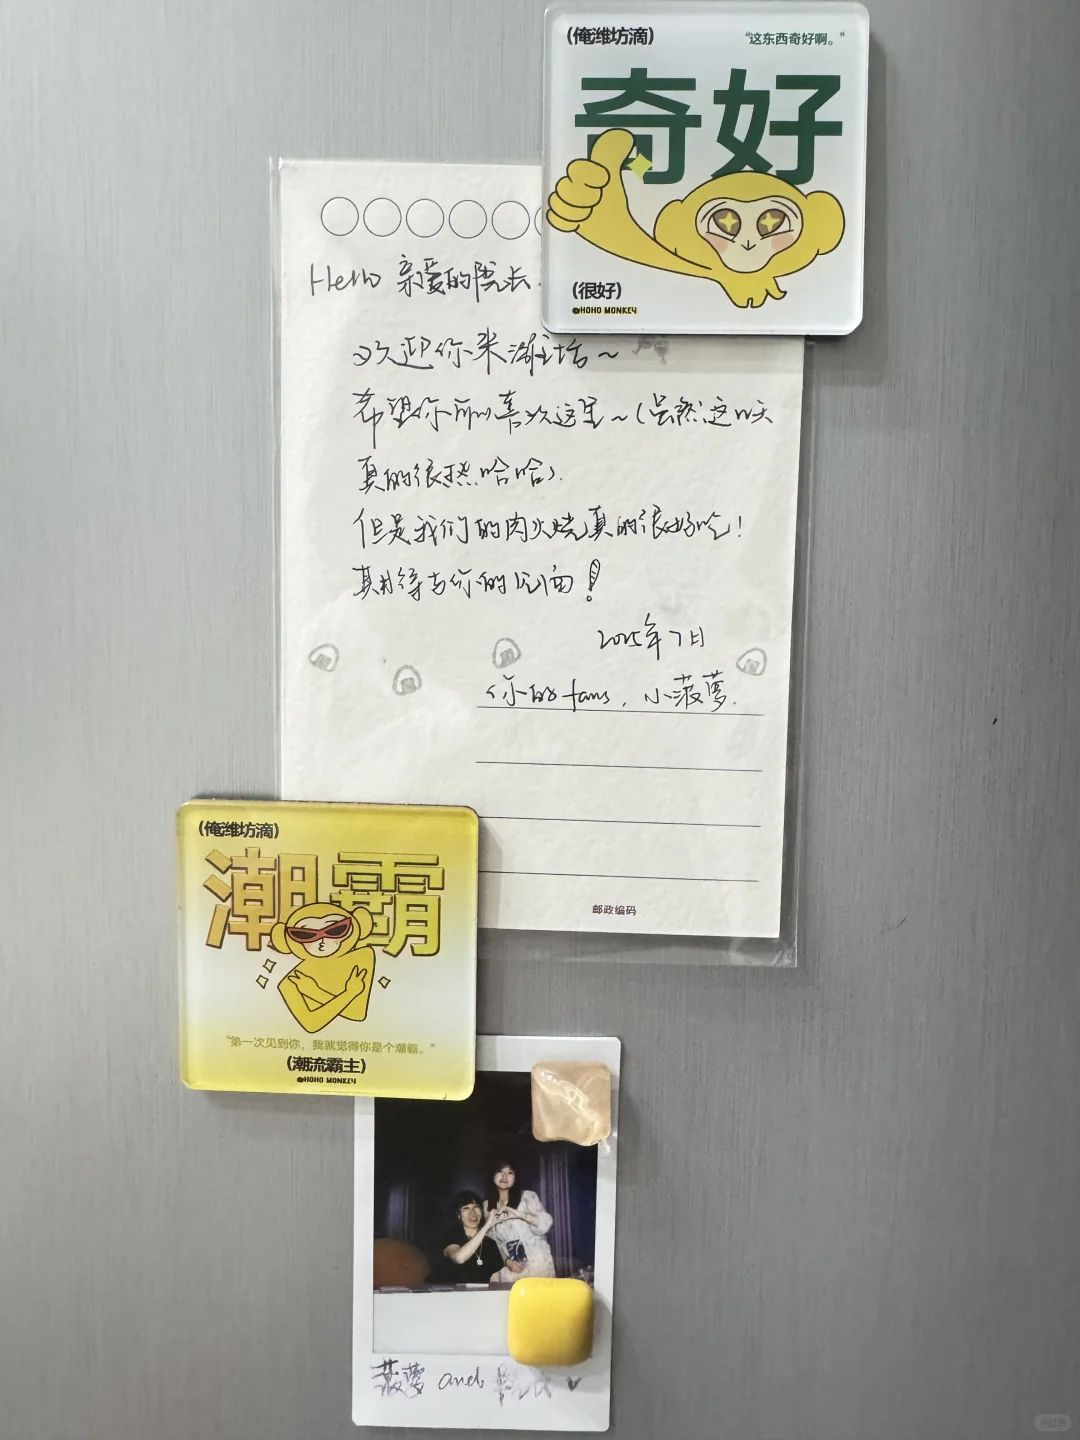 (俺潍坊滴)
“这东西奇好啊。”
奇好
(很好)
@HOHO MONKEY
Hello 亲爱的院长.
欢迎你来潍坊~
希望你可以喜欢这里~(虽然这几天
真的很热哈哈).
但是我们的肉火烧真的很好吃!
期待与你的见面!
2025年7月
你的fans, 小菠萝.
邮政编码
(俺潍坊滴)
潮霸
“第一次见到你，我就觉得你是个潮霸。”
(潮流霸主)
@HOHO MONKEY
菠萝 and
小红书